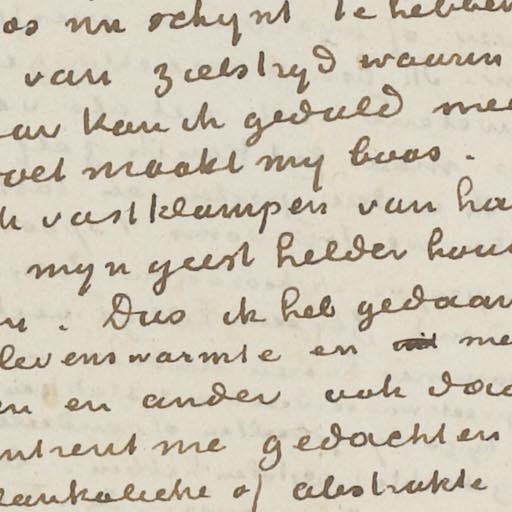 os nu schynt te hebben
van zielstryd waarin
ar kan ik geduld me
oet maakt my boos.
k vastklampen van ha
myn geest helder hou
n. Dus ik heb gedaan
levenswarmte en me
en en ander ook doo
ntrent me gedachten
ankolieke of abstrakte